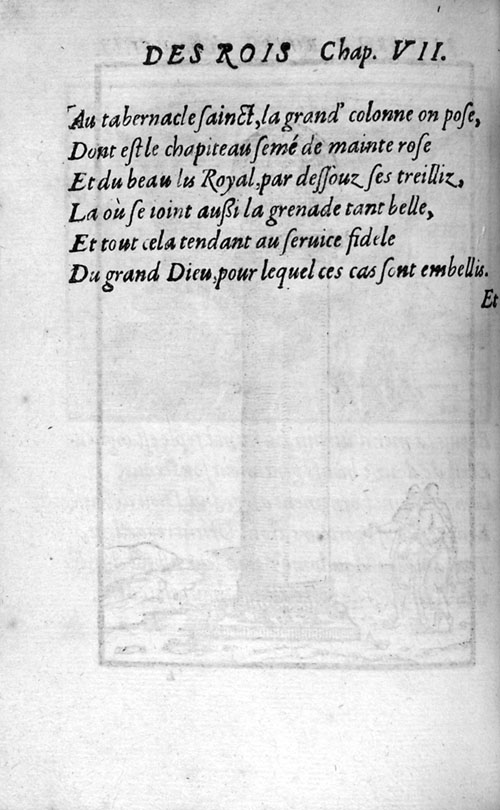 DES ROIS Chap. VII.
Au tabernacle sainct, la grand' colonne on pose,
Dont est le chapiteau semé de mainte rose
Et du beau lis Royal, par dessouz ses treilliz,
La où se ioint aussi la grenade tant belle,
Et tout cela tendant au seruice fidele
Du grand Dieu, pour lequel ces cas sont embellis.
Et